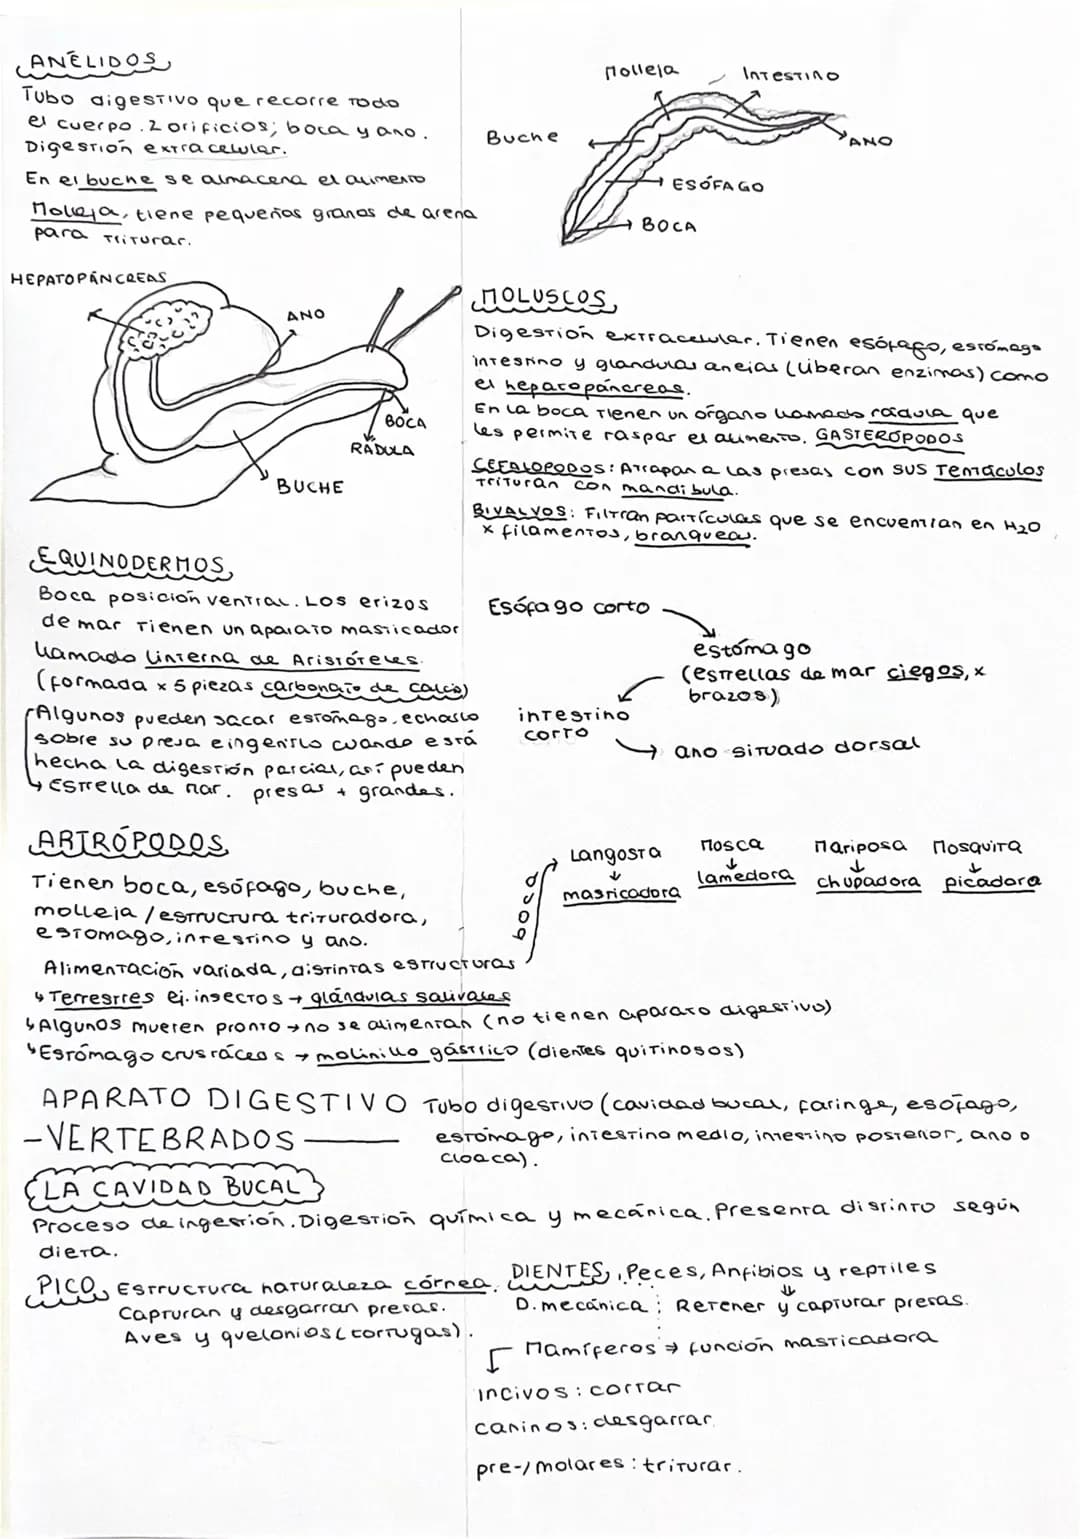 ANÉLIDOS
Tubo digestivo que recorre todo
el cuerpo. 2 orificios; boca y ano.
Digestión extracelular.
En el buche se almacena el alimento
Molleja, tiene pequeños granos de arena
para triturar.
Molleja
INTESTINO
Buche
ANO
ESÓFAGO
BOCA
HEPATOPÁNCREAS
ANO
BOCA
RÁDULA
BUCHE
MOLUSCOS
Digestión extracelular. Tienen esófago, estómago
intestino y glandulas anejas (liberan enzimas) como
el hepatopáncreas.
En la boca tienen un órgano llamado rádula que
les permite raspar el alimento. GASTERÓPODOS
CEFALOPODOS: Atrapan a las presas con sus tentáculos
Trituran con mandibula.
BIVALVOS: Filtran partículas que se encuentran en H2O
x filamentos, branqueas.
EQUINODERMOS
Boca posición ventral. Los erizos
de mar tienen un aparato masticador
llamado linterna de Aristóteles.
(formada x 5 piezas carbonato de calcio)
Algunos pueden sacar estomago, echarlo
sobre su presa e ingerirlo cuando está
hecha la digestión parcial, así pueden
↳ Estrella de mar. presas + grandes.
Esófago corto
estómago
(estrellas de mar ciegos, x
brazos)
intestino
corto
ano situado dorsal
ARTRÓPODOS
Tienen boca, esófago, buche,
molleja / estructura trituradora,
estomago, intestino y ano.
Alimentación variada, distintas estructuras
boca
Langosta
↓
masticadora
Mosca
↓
lamedora
Mariposa
↓
chupadora
Mosquita
↓
picadora
↳ Terrestres ej. insectos → glándulas salivales
↳ Algunos mueren pronto → no se alimentan (no tienen aparato digestivo)
↳ Estómago crustáceos → molinillo gástrico (dientes quitinosos)
APARATO DIGESTIVO
-VERTEBRADOS
Tubo digestivo (cavidad bucal, faringe, esófago,
estómago, intestino medio, intestino posterior, ano o
cloaca).
LA CAVIDAD BUCAL
Proceso de ingestión. Digestión química y mecánica. Presenta distinto según
dieta.
PICO Estructura naturaleza córnea.
Capturan y desgarran presas.
Aves y quelonios (tortugas).
DIENTES Peces, Anfibios y reptiles
D. mecánica Retener y capturar presas.
Mamíferos ⇒ función masticadora
incivos: cortar
caninos: desgarrar
pre-/molares: triturar.